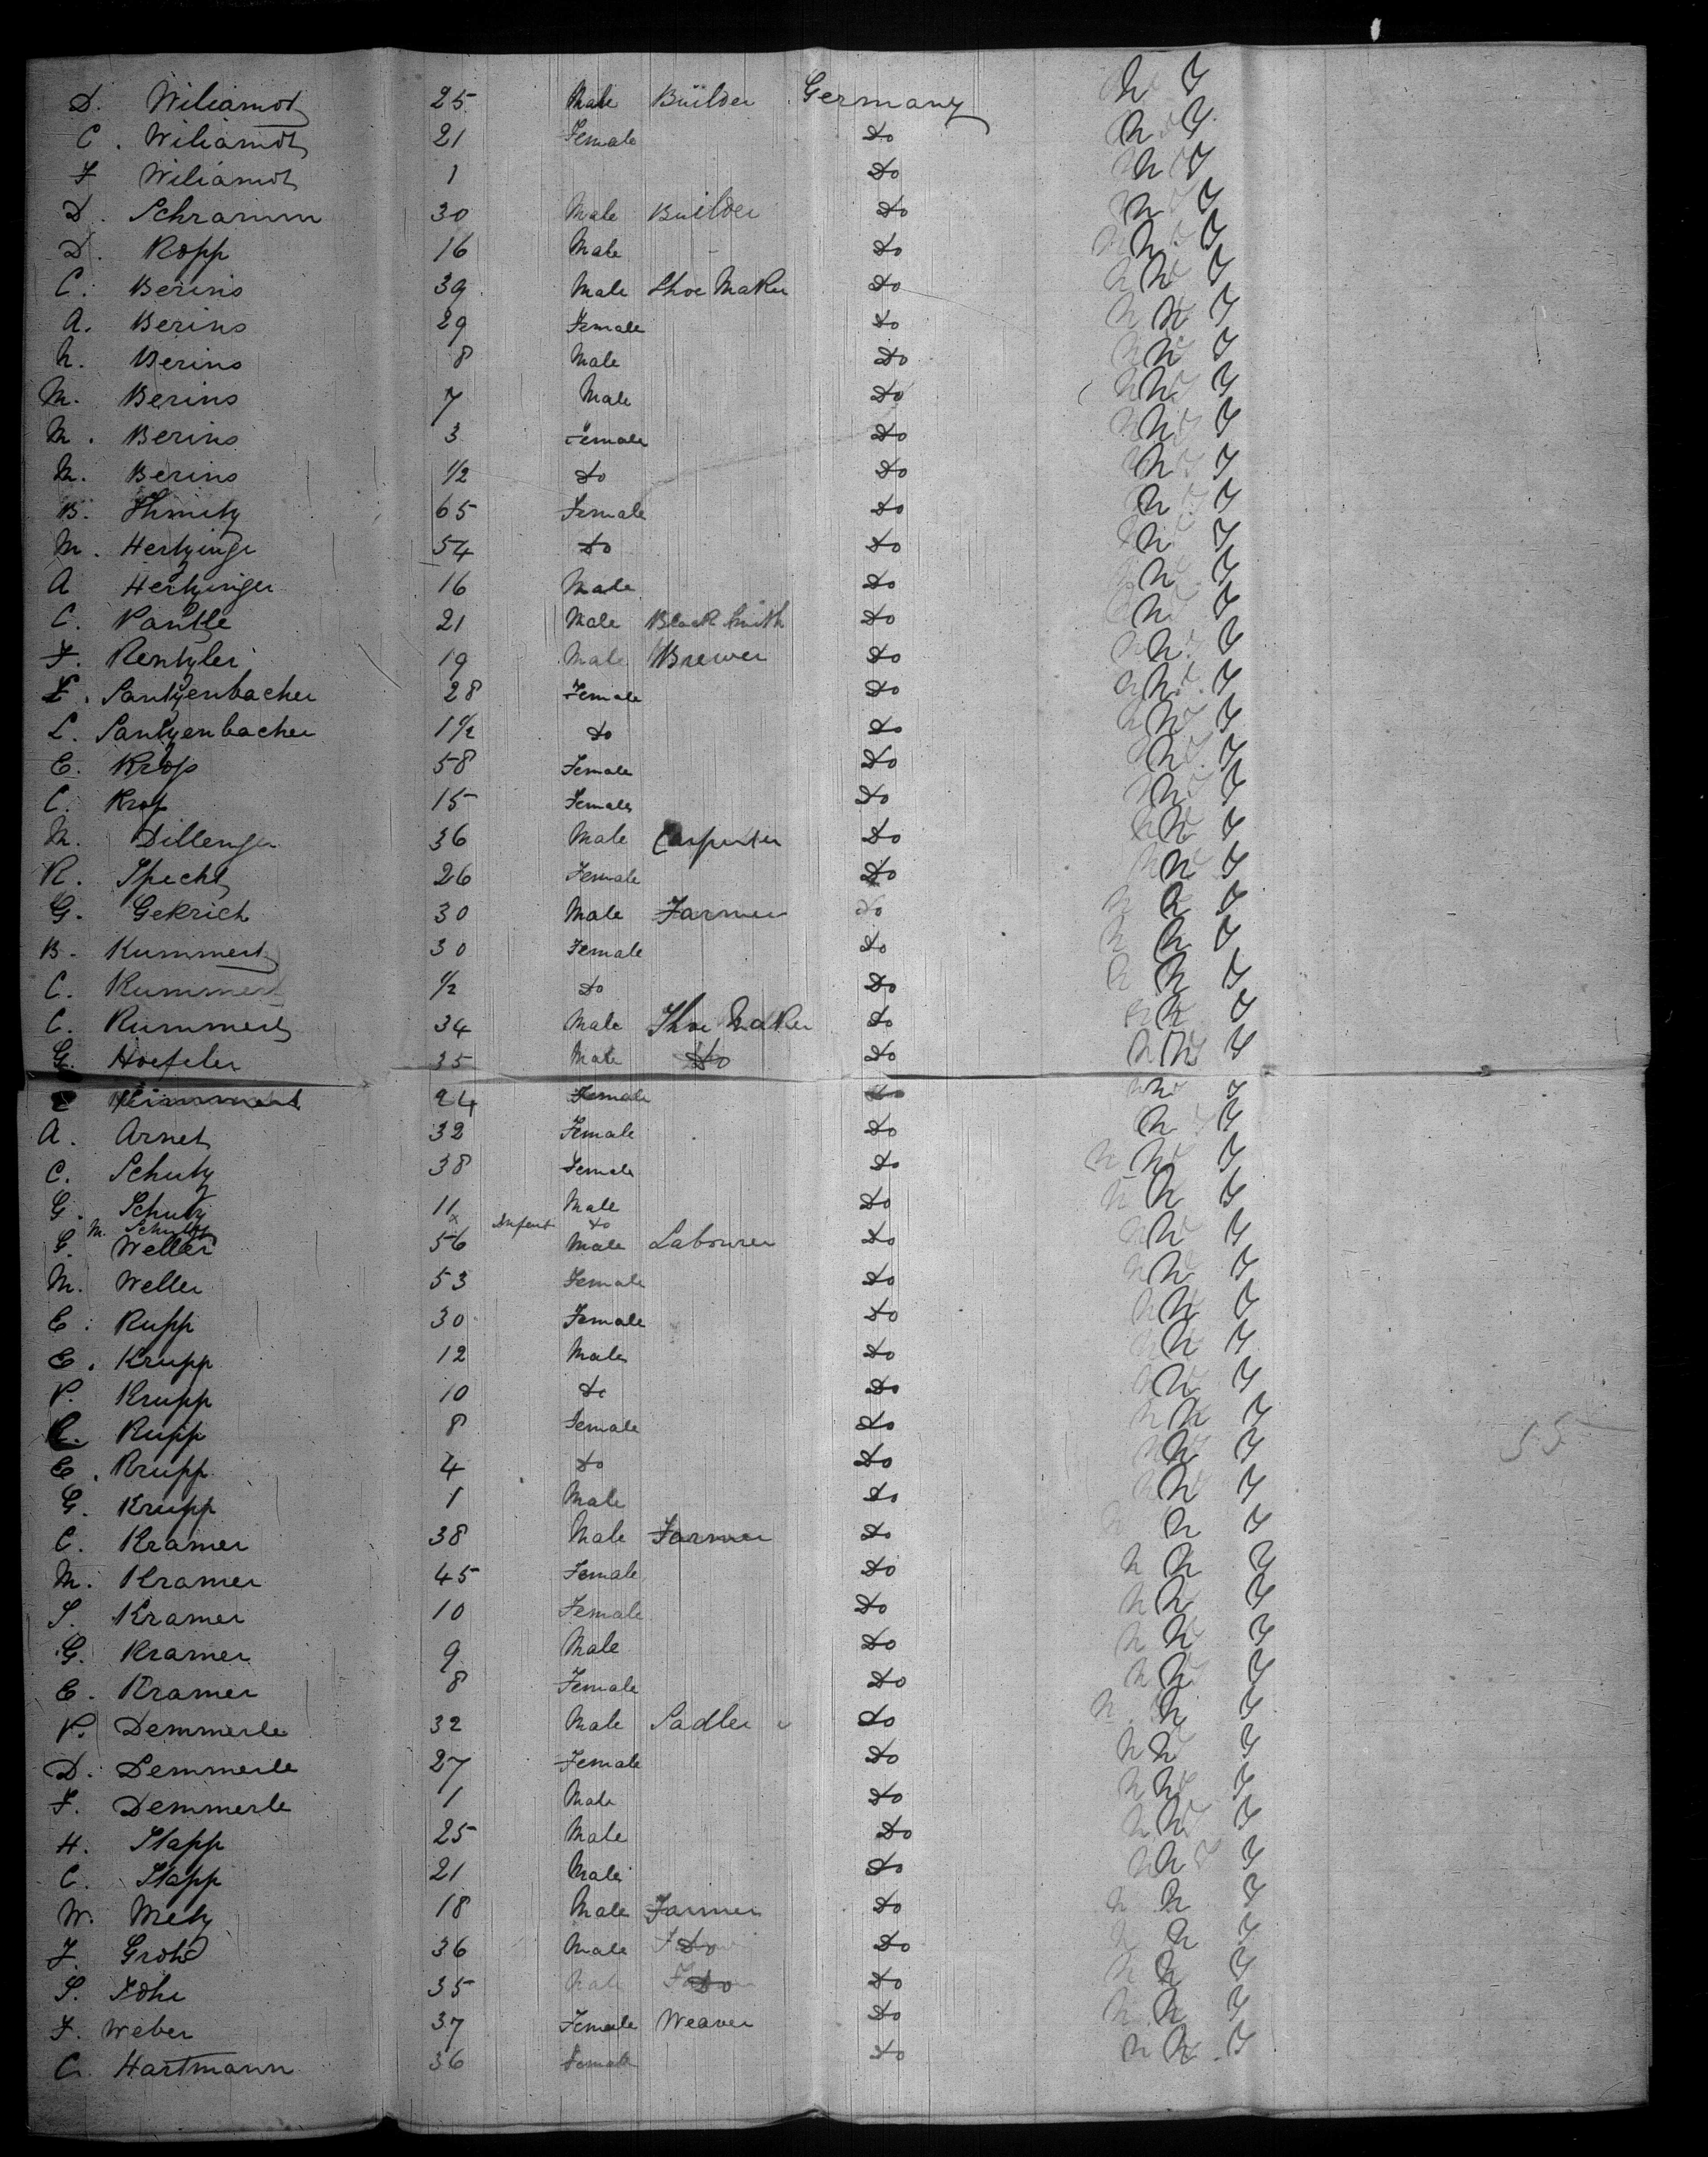 D. Wiliamdt 25 Male Builder Germany N Y
C. Wiliamdt 21 Female Do N Y
F Wiliamdt 1 Do N Y
D. Schramm 30 Male Builder Do N Y
D. Kopp 16 Male - Do N Y
C. Berins 39 Male Shoe Maker Do N Y
A. Berins 29 Female Do N Y
N. Berins 8 Male Do N Y
M. Berins 7 Male Do N Y
M. Berins 3 Female Do N Y
M. Berins 1/2 Do Do N Y
B. Shmitz 65 Female Do N Y
M. Hertzinge 54 Do Do N Y
A Hertzinger 16 Male Do N Y
C. Pantle 21 Male Black Smith Do N Y
F. Rentzler 19 Male Brewer Do N Y
L. Santzenbacher 28 Female Do N Y
L. Santzenbacher 1 1/2 Do Do N Y
E. Krop 58 Female Do N Y
C. Krop 15 Female Do N Y
M. Dillenger 36 Male Carpenter Do N Y
R. Specht 26 Female Do N Y
G. Gekrich 30 Male Farmer Do N Y
B. Kummert 30 Female Do N Y
C. Kummert 1/2 Do Do N Y
C. Kummert 34 Male Shoe Maker Do N Y
G. Hoefeler 35 Male Do Do N Y
24 Female Do N Y
A. Arnet 32 Female Do N Y
C. Schutz 38 Female Do N Y
G. Schutz 11 Male Do N Y
M. Schultz x Infent Do
G. Weller 56 Male Labourer Do N Y
M. Weller 53 Female Do N Y
E. Rupp 30 Female Do N Y
E. Krupp 12 Male Do N Y
P. Krupp 10 Do Do N Y
Rupp 8 Female Do N Y
E. Krupp 4 Do Do N Y
G. Krupp 1 Male Do N Y
C. Kramer 38 Male Farmer Do N Y
M. Kramer 45 Female Do N Y
S. Kramer 10 Female Do N Y
G. Kramer 9 Male Do N Y
E. Kramer 8 Female Do N Y
P. Demmerle 32 Male Sadler Do N Y
D. Demmerle 27 Female Do N Y
F. Demmerle 1 Male Do N Y
H. Stapp 25 Male Do N Y
C. Stapp 21 Male Do N Y
W. Metz 18 Male Farmer Do N Y
J. Grohs 36 Male Do Do N Y
S. Fohr 35 Male Do Do N Y
F. Weber 37 Female Weaver Do N Y
C. Hartmann 36 Female Do N Y
55